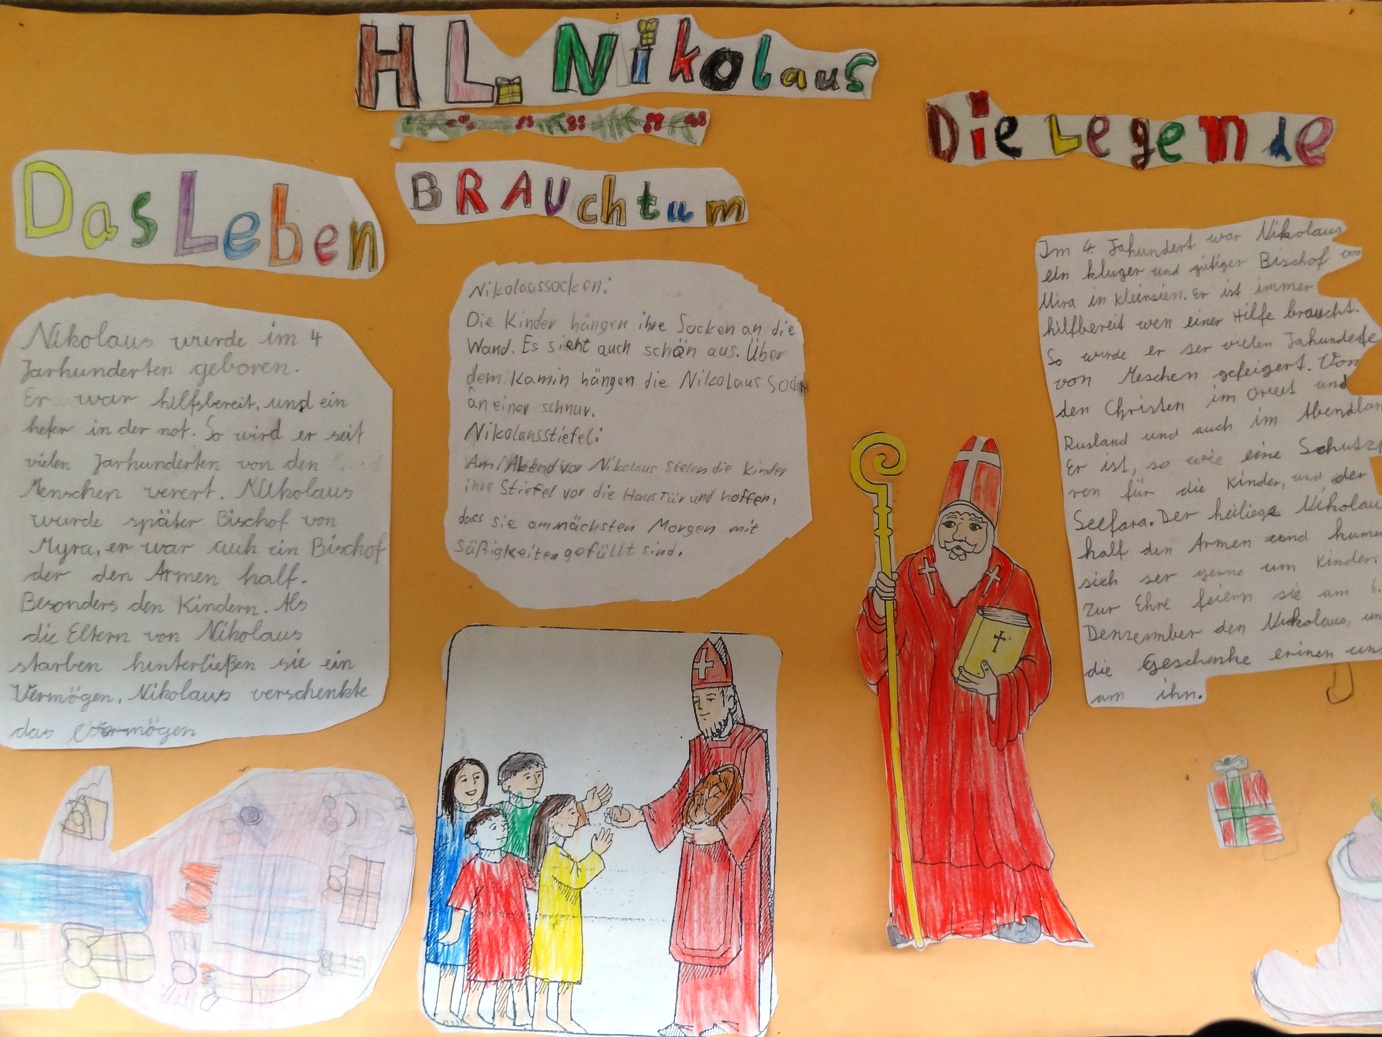 HL. Nikolaus
Das Leben
Nikolaus wurde im 4
Jarhunderten geboren.
Er war hilfsbereit, und ein
hefer in der not. So wird er seit
vielen Jarhunderten von den
Menschen verert. Nikolaus
wurde später Bischof von
Myra, er war auh ein Bischof
der den Armen half.
Besonders den Kindern. Als
die Eltern von Nikolaus
starben hinterließen sie ein
Vermögen. Nikolaus verschenkte
das Vermögen
BRAUchtum
Nikolaussocken:
Die Kinder hängen ihre Socken an die
Wand. Es sieht auch schön aus. Über
dem Kamin hängen die Nikolaus Socken
an einer schnur.
Nikolausstiefel:
Am Abend vor Nikolaus stelen die Kinder
ihre Stiefel vor die Haustür und hoffen,
dass sie am nächsten Morgen mit
süßigkeiten gefüllt sind.
Die Legende
Im 4 Jahundert war Nikolaus
ein kluger und gütiger Bischof von
Mira in Kleinsien. Er ist immer
hilfbereit wen einer Hilfe braucht.
So wurde er ser vielen Jahunderte
von Meschen gefeigert. Von
den Christen im und
Rusland und auch im Abendlan
Er ist, so wie eine Schutzp
ron für die Kinder, und der
Seefara. Der heilige Nikolau
half den Armen und
sich ser gerne um Kinder.
Zur Ehre feiern sie am 6.
Denzember den Nikolaus, un
die Geschenke erinen uns
am ihn.